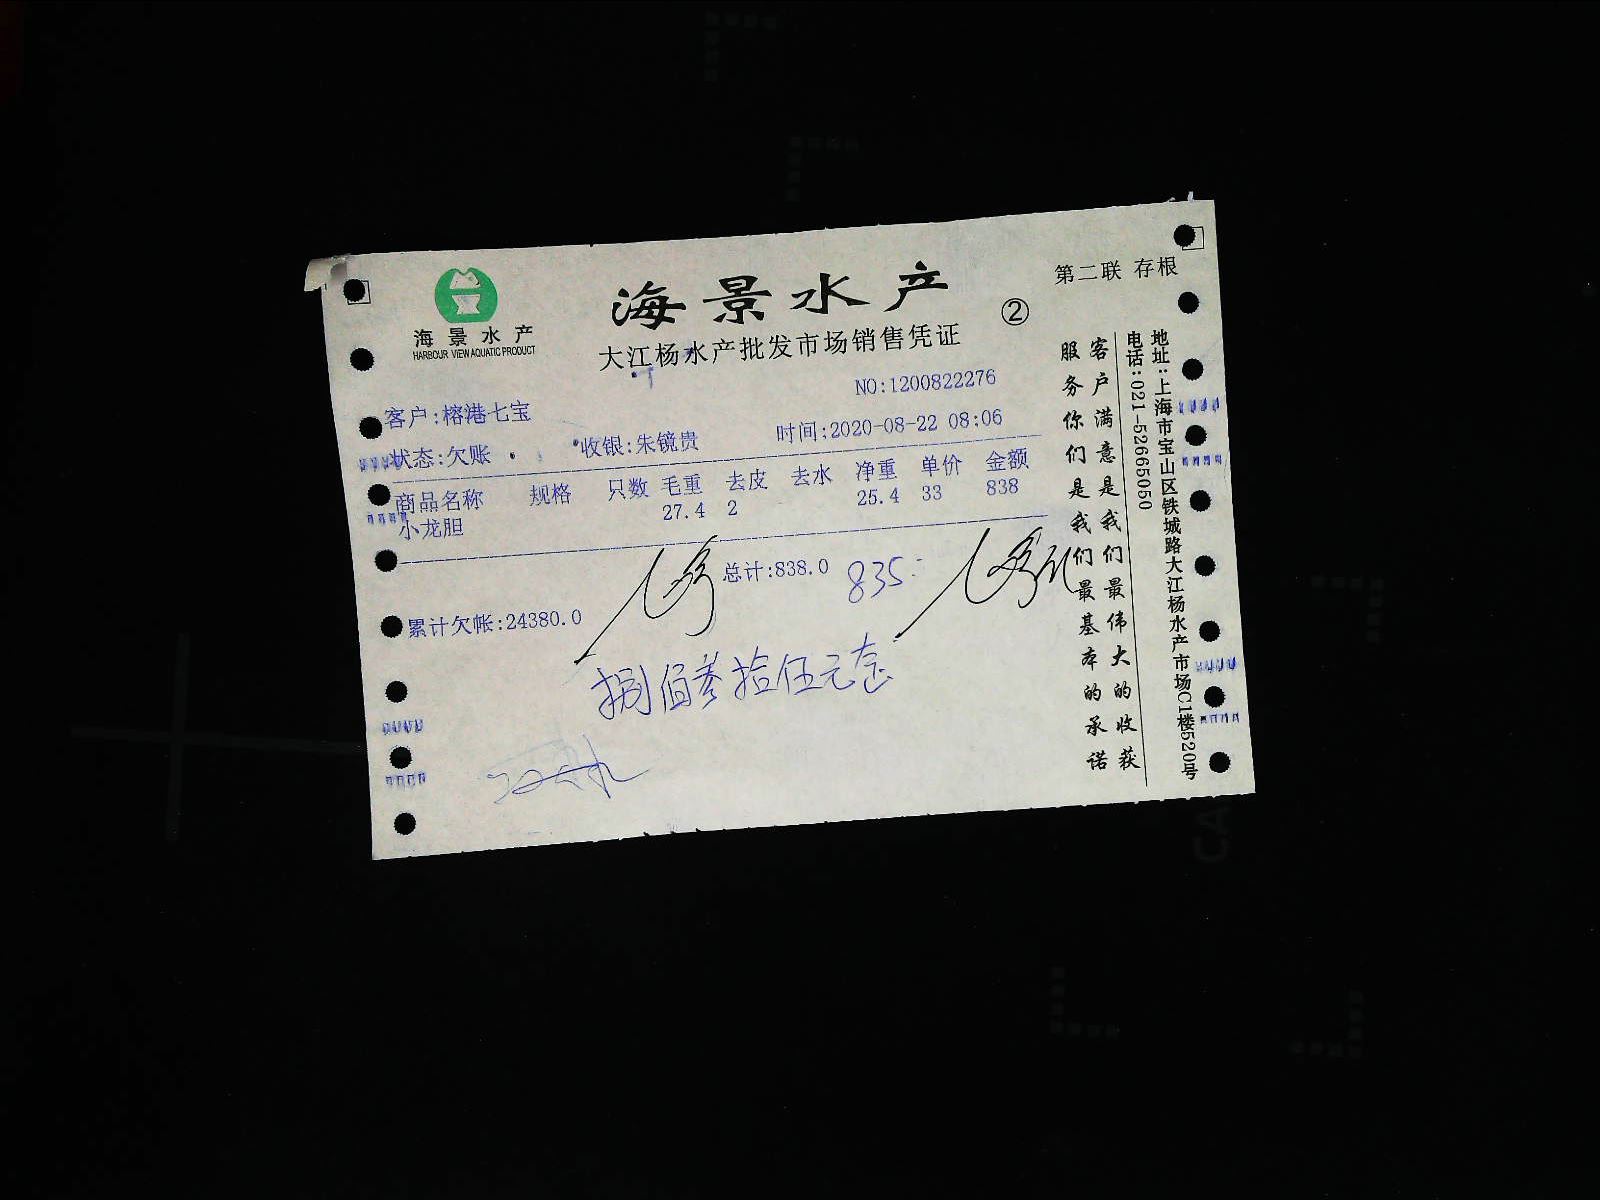 海景水产
HARBOUR VIEW AQUATIC PRODUCT
海景水产
大江杨水产批发市场销售凭证
②
第二联 存根
NO:1200822276
客户:榕港七宝
状态:欠账 收银:朱镜贵 时间:2020-08-22 08:06
商品名称 规格 只数 毛重 去皮 去水 净重 单价 金额
小龙胆 27.4 2 25.4 33 838
总计:838.0 835.-
累计欠帐:24380.0
捌佰叁拾伍元
客户满意是我们最伟大的收获
服务你们是我们最基本的承诺
地址:上海市宝山区铁城路大江杨水产市场C1楼520号
电话:021-52665050